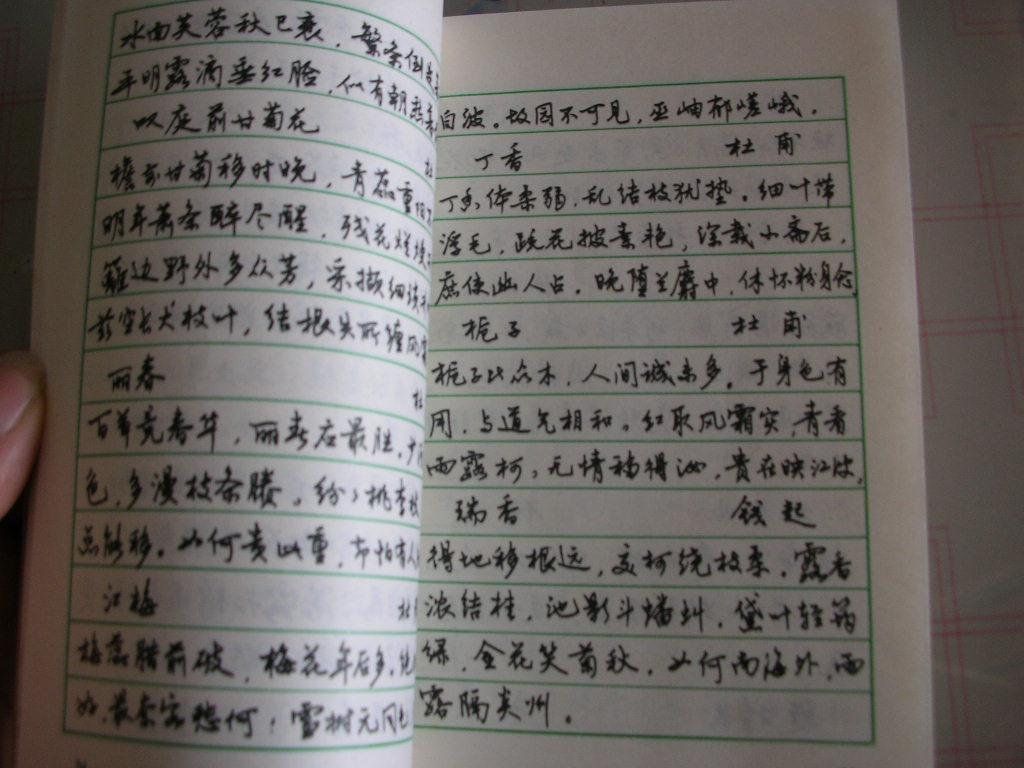 水面芙蓉秋已衰，繁条倒
平明露滴垂红脸，似有朝
叹庭前甘菊花
檐前甘菊移时晚，青蕊重
明年萧条醉尽醒，残花烂熳
篱边野外多众芳，采撷细琐
兹空长大枝叶，结根失所缠风
丽春
百草竞春华，丽春应最胜。少
色，多漫枝条賸。纷纷桃李枝
总能移。如何贵此重，却怕有人
江梅
梅蕊腊前破，梅花年后多，绝
好，最奈客愁何？雪树元同色
白波。故园不可见，巫岫郁嵯峨。
丁香 杜甫
丁香体柔弱，乱结枝犹垫。细叶带
浮毛，疏花披素艳，深栽小斋后，
庶使幽人占。晚堕兰麝中，休怀粉身念。
栀子 杜甫
栀子比众木，人间诚未多。于身色有
用，与道气相和。红取风霜实，青看
雨露柯。无情移得汝，贵在映江波。
瑞香 钱起
得地移根远，交柯绕枝柔。露香
浓结桂，池影斗蟠虬，黛叶轻筠
绿，金花笑菊秋。如何南海外，雨
露隔炎州。